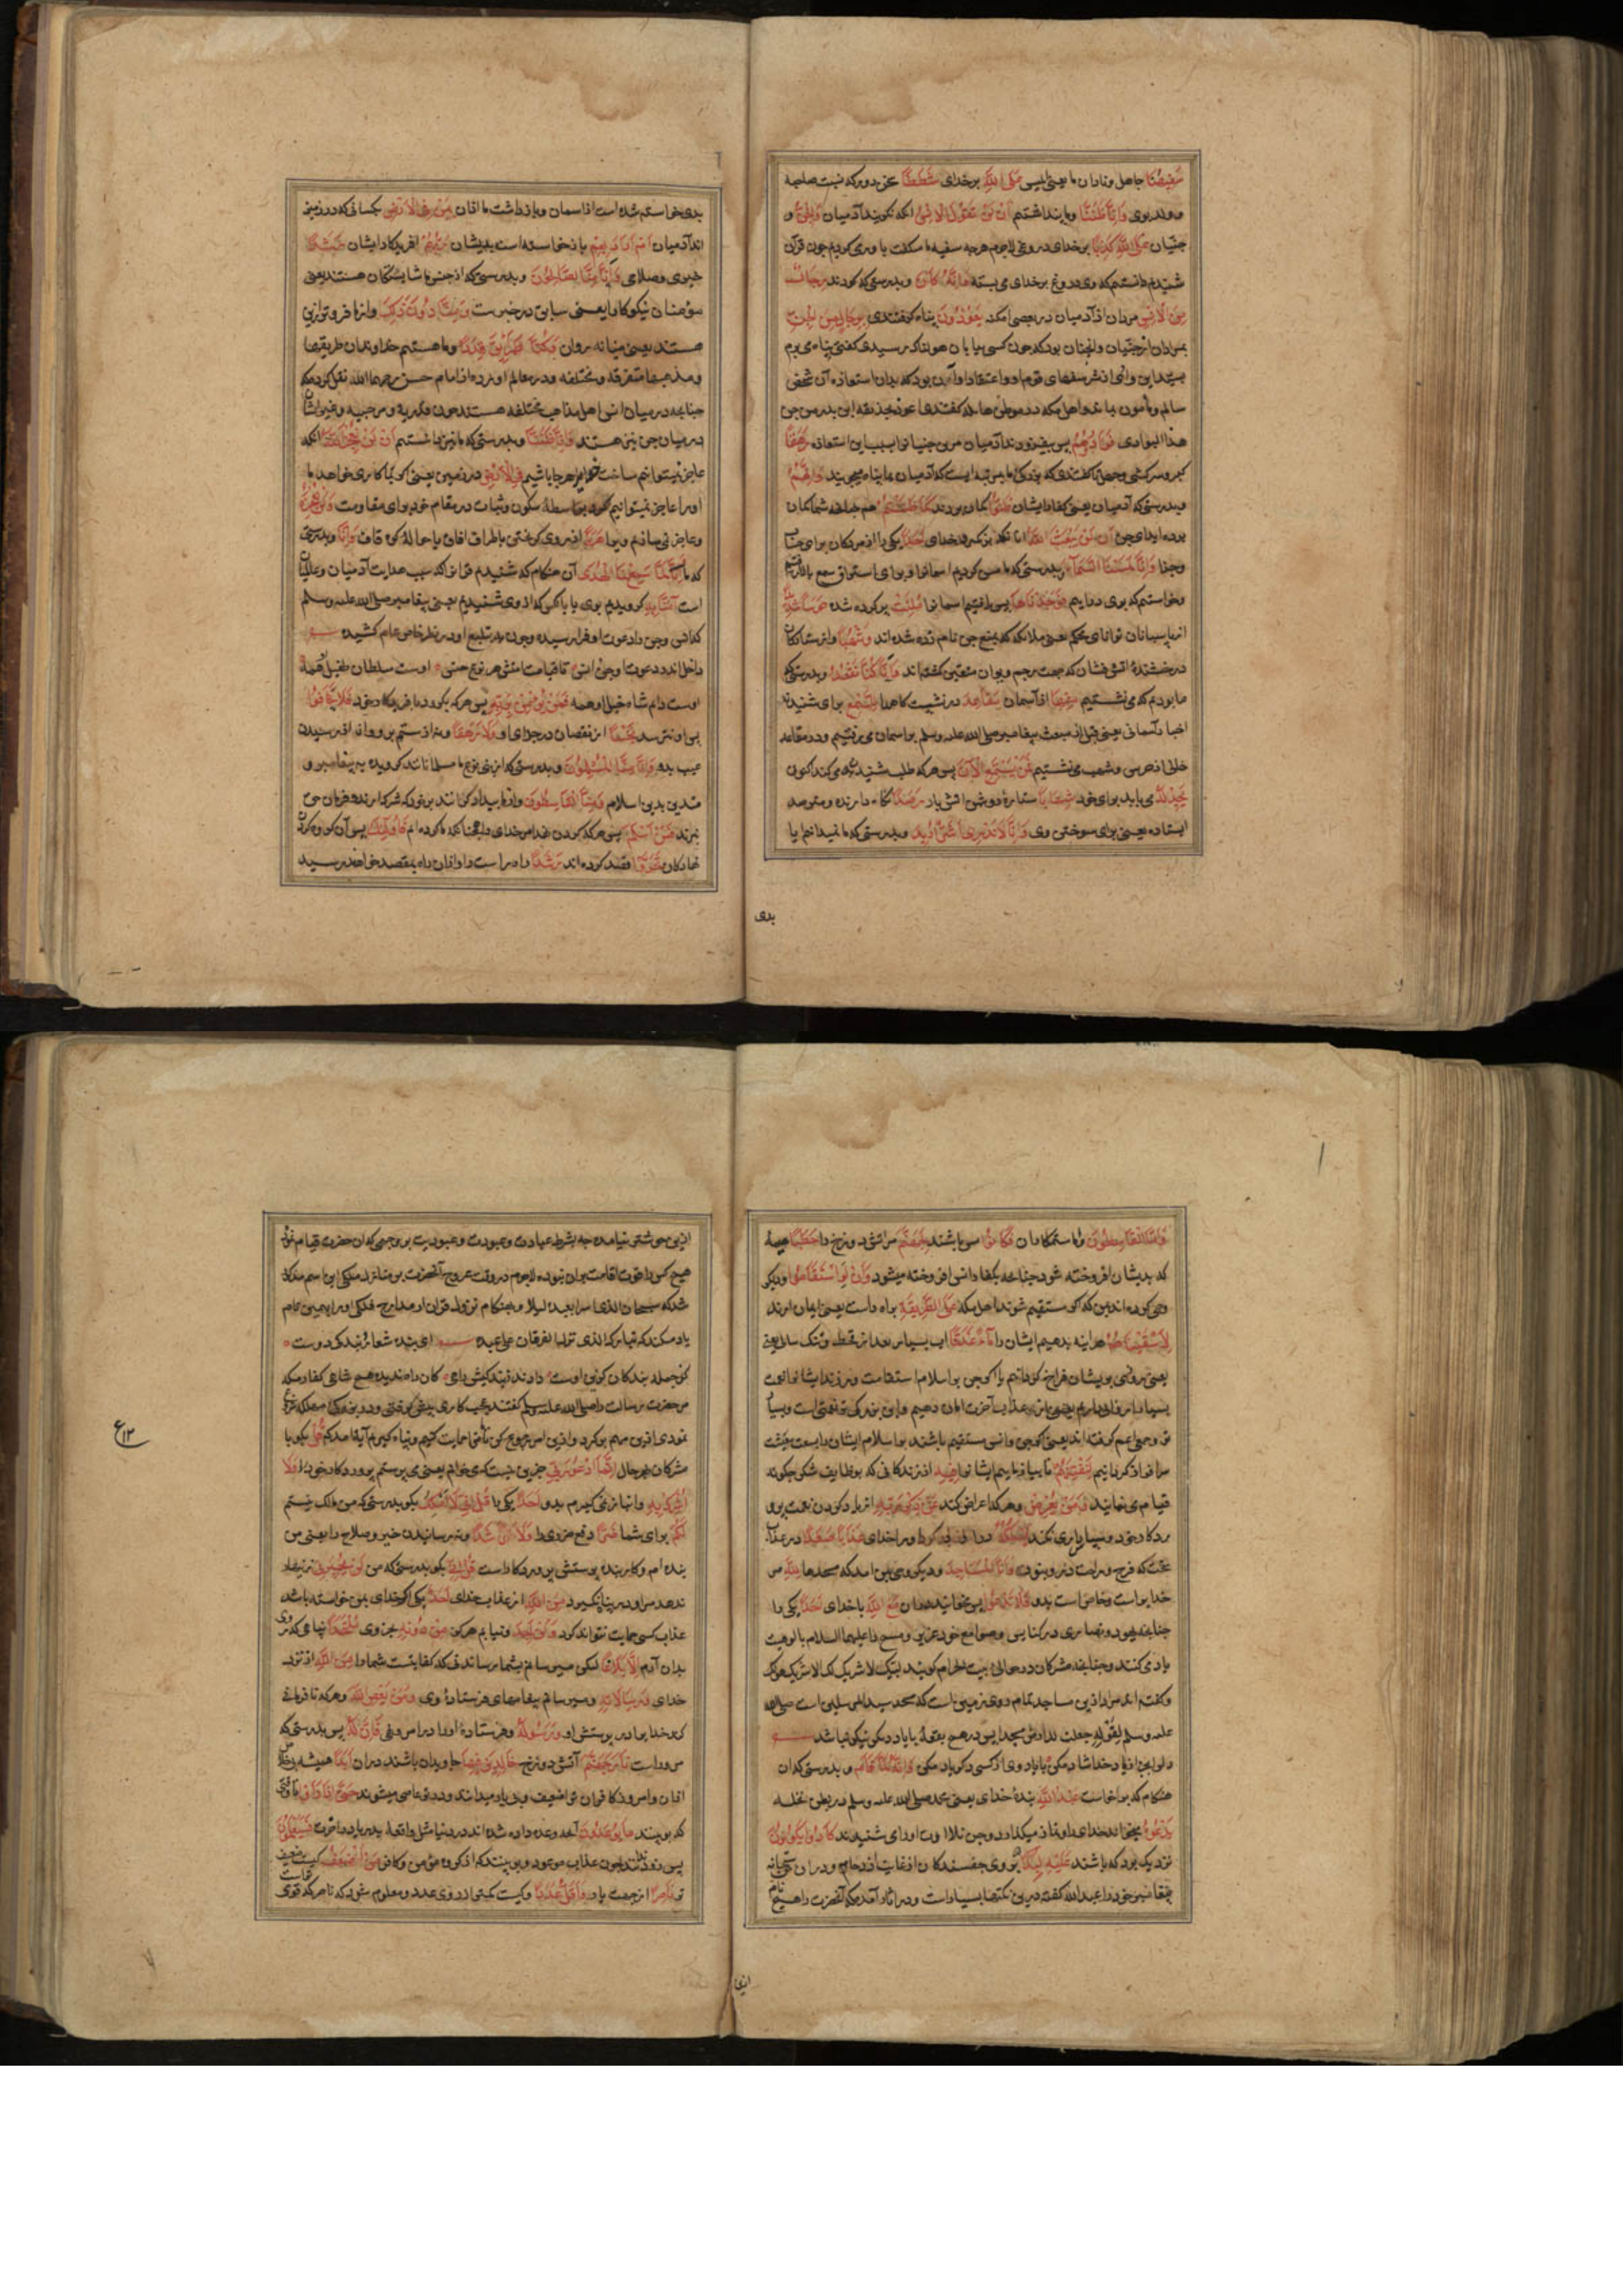 سَفِيهُنَا جاهل و نادان ما یعنی ابلیس عَلَى اللَّهِ بر خدای شَطَطًا سخن دور که نسبت صاحبه
و ولد بوی وَأَنَّا ظَنَنَّا و ما پنداشتیم أَنْ لَنْ تَقُولَ الْإِنْسُ آنکه نگویند آدمیان وَالْجِنُّ و
جنیان عَلَى اللَّهِ كَذِبًا بر خدای دروغی لاجرم هرچه سفیه ما میگفت باوری کردیم چون قرآن
شنیدیم دانستیم که وی دروغ بر خدای می بسته وَأَنَّهُ كَانَ و بدرستی که بودند رِجَالٌ
مِنَ الْإِنْسِ مردان از آدمیان در بعضی امکنه يَعُوذُونَ پناه گرفتندی بِرِجَالٍ مِنَ الْجِنِّ
بمردان از جنیان و انچنان بود که چون کسی به بیابان هولناک رسیدی گفتی پناه می برم
بسید این وادی از شر سفهای قوم او و اعتقاد او آن بود که بدان استعاذه آن شخص
سالم و مأمون بماند و اهل مکه در موطن هایله گفتندی اعوذ بحذیفه ابن بدر من جن
هذا الوادی فَزَادُوهُمْ پس بیفزودند آدمیان مر جنیانرا بسبب این استعاذه رَهَقًا
کبر و سرکشی و جنیان گفتندی که بزرگی ما بمرتبه ایست که آدمیان بما پناه میجویند وَأَنَّهُمْ
و بدرستی که آدمیان یعنی کفار ایشان ظَنُّوا گمان بردند كَمَا ظَنَنْتُمْ هم چنانچه شما گمان
برده اید ای جن أَنْ لَنْ يَبْعَثَ اللَّهُ آنکه بر نگیرد خدای أَحَدًا یکی را از مردگان برای حساب
و جزا وَأَنَّا لَمَسْنَا السَّمَاءَ و بدرستی که ما مس کردیم اسمانرا برای استراق سمع بالا رفتیم
و خواستیم که بوی در آییم فَوَجَدْنَاهَا پس یافتیم اسمانرا مُلِئَتْ پر کرده شده حَرَسًا شَدِيدًا
از پاسبانان توانای محکم یعنی ملائکه که بمنع جن نامزد شده اند وَشُهُبًا و از ستارگان
درخشنده اتش فشان که جهت رجم دیوان متعین گشته اند وَأَنَّا كُنَّا نَقْعُدُ و بدرستی که
ما بودیم که می نشستیم مِنْهَا از آسمان مَقَاعِدَ در نشست گاهها لِلسَّمْعِ برای شنیدن
اخبار آسمانی یعنی قبل از مبعث پیغامبر صلی الله علیه وسلم بر اسمان می رفتیم و در مقاعد
خالی از حرس و شهب می نشستیم فَمَنْ يَسْتَمِعِ الْآنَ پس هر که طلب شنیدن می کند اکنون
يَجِدْ لَهُ می یابد برای خود شِهَابًا ستاره روشن اتش بار رَصَدًا نگاه دارنده و مترصد
ایستاده یعنی برای سوختن وی وَأَنَّا لَا نَدْرِي أَشَرٌّ أُرِيدَ و بدرستی که ما نمیدانیم ایا
بدی
بدی خواسته شده است از اسمان و بازداشت ما ازان بِمَنْ فِي الْأَرْضِ بکسانی که در زمین
اند آدمیان أَمْ أَرَادَ بِهِمْ یا نه خواسته است بدیشان رَبُّهُمْ آفریدگار ایشان رَشَدًا
خیری و صلاحی وَأَنَّا مِنَّا الصَّالِحُونَ و بدرستی که از جنس ما شایستگان هستند یعنی
مؤمنان نیکوکار یعنی سابق در خیرت وَمِنَّا دُونَ ذَلِكَ و از ما فروتر ازین
هستند یعنی میانه روان كُنَّا طَرَائِقَ قِدَدًا و ما هستیم خداوندان طریقها
و مذهبها متفرقه و مختلفه و در معالم اورده از امام حسن رحمهما الله نقل کرده که
چنانچه در میان انس اهل مذاهب مختلفه هستند چون قدریه و مرجیه و غیر ایشان
در میان جن نیز هستند وَأَنَّا ظَنَنَّا و بدرستی که ما نیز دانستیم أَنْ لَنْ نُعْجِزَ اللَّهَ آنکه
عاجز نیستوانیم ساخت خدایرا هرجا باشیم فِي الْأَرْضِ در زمین یعنی اگر بما کاری خواهد ما
اورا عاجز نمیتوانیم کرد بواسطه سکون و ثبات در مقام خود برای مقاومت وَلَنْ نُعْجِزَهُ
و عاجز نمی سازیم ویرا هَرَبًا از روی گریختن باطراف افاق یا حوالئ کوه قاف وَأَنَّا و بدرستی
که ما لَمَّا سَمِعْنَا الْهُدَى آن هنگام که شنیدیم قرانرا که سبب هدایت آدمیان و عالمیان
است آمَنَّا بِهِ گرویدیم بوی یا بانکس که از وی شنیدیم یعنی پیغامبر صلی الله علیه وسلم
که انس و جن را دعوت او فرا رسیده و چون بهره تبلیغ او در نظر خاص عام کشیده
داخل اندر دعوت او جن و انس تا قیامت امتش هر نوع جنس اوست سلطان طفیل او همه
اوست دایم شاه خیل او همه فَمَنْ يُؤْمِنْ بِرَبِّهِ پس هر که بگرود به آفریدگار خود فَلَا يَخَافُ
پس او نترسد بَخْسًا از نقصان در جزای او وَلَا رَهَقًا و نه از ستم برو و از فرا رسیدن
عیب بدو وَأَنَّا مِنَّا الْمُسْلِمُونَ و بدرستی که از بنی نوع ما مسلمانانند گرویده به پیغامبر و
متدین بدین اسلام وَمِنَّا الْقَاسِطُونَ و از ما بیدادگرانند بر خود که شرک ارند و فرمان حق
نبرند فَمَنْ أَسْلَمَ پس هر که گردن نهد امر خدایرا چنانچه ما کرده ایم فَأُولَئِكَ پس آن گروه گردن
نهادگان تَحَرَّوْا قصد کرده اند رَشَدًا راه راست را و ازان راه بمقصد خواهند رسید
وَأَمَّا الْقَاسِطُونَ و اما ستمکاران فَكَانُوا پس باشند لِجَهَنَّمَ مر اتش دوزخ را حَطَبًا هیمه
که بدیشان افروخته شود چنانچه بکفار انس افروخته میشود وَأَنْ لَوِ اسْتَقَامُوا و دیگر
وحی کرده اند بمن که اگر مستقیم شوند اهل مکه عَلَى الطَّرِيقَةِ بر راه راست یعنی ایمان ارند
لَأَسْقَيْنَاهُمْ هراینه بدهیم ایشان را مَاءً غَدَقًا اب بسیار بعد از قحط و تنگ سالی یعنی
یعنی روزی بر ایشان فراخ گردانیم یا اگر جن بر اسلام استقامت ورزند ایشانرا نعمت
بسیار ارزانی داریم یعنی از عذاب آخرت امان دهیم و این بزرگ ترین نعمتی است و بسیار
تر و جمعی اعم گرفته اند یعنی اگر جن و انس مستقیم باشند بر اسلام ایشان را بسعت عیشت
سرافراز گردانیم لِنَفْتِنَهُمْ تا بیازماییم ایشانرا فِيهِ ازان زندگانی که بوظایف شکر چگونه
قیام می نمایند وَمَنْ يُعْرِضْ و هر که اعراض کند عَنْ ذِكْرِ رَبِّهِ از یاد کردن نعمت پرو
ردگار خود و سپاس داری نکند يَسْلُكْهُ درارد عَذَابًا صَعَدًا در عذاب
سخت که فرح و راحت در و نبود وَأَنَّ الْمَسَاجِدَ و دیگر وحی بمن امد که مسجدها لِلَّهِ مر
خدایراست و خاص است بدو فَلَا تَدْعُوا پس مخوانید دران مَعَ اللَّهِ با خدای أَحَدًا یکی را
چنانچه یهود و نصاری در کنایس و صوامع خود عزیر و مسیح را علیهما السلام بالوهیت
یاد می کنند و چنانچه مشرکان در حوالی بیت الحرام گویند لبیک لا شریک لک الا شریک هو لک
و گفته اند مراد ازین مساجد تمام روی زمین است که مسجد سید المرسلین است صلی الله
علیه وسلم لقوله جعلت لی الارض مسجدا پس در هیچ بقعه با یاد دیگری نیکو نباشد
دلرا بجز از یاد خدا شاد مکن یا یاد وی از کسی دگر یاد مکن وَأَنَّهُ لَمَّا قَامَ و بدرستی که آن
هنگام که برخاست عَبْدُ اللَّهِ بنده خدای یعنی محمد صلی الله علیه وسلم در بطن نخله
يَدْعُوهُ میخواند خدای را و نماز میگذارد و جن تلاوت اورا می شنیدند كَادُوا يَكُونُونَ
نزدیک بود که باشند عَلَيْهِ لِبَدًا بر وی چفسندگان از غایت ازدحام و دران
پیغامبر خود را عبدالله گفته درین نکتها بسیار است و در اثار آمده که آنحضرت را هیچ نام
ازین
ازین خوشتر نیامده چه بشرط عبادت و عبودت و عبودیت بر وجهی که ان حضرت قیام نمود
هیچ کس را قوت اقامت بران نبوده لاجرم در وقت عروج آنحضرت بر منازل ملکی این اسم مذکور
شد که سبحان الذی اسرا بعبده لیلا و بهنگام نزول قران از مدارج فلکی اورا بهمین نام
یاد میکند که تبارک الذی نزل الفرقان علی عبده ای بنده شعار بندگی دوست
مر حضرت رسالت را صلی الله علیه وسلم گفتند عجب کاری پیش گرفتی
نمودی ازین مهم برگرد و ازین امر رجوع کن تا ترا حمایت کنیم و پناه گیریم آیه آمد که قُلْ بگو با
مشرکان إِنَّمَا أَدْعُو رَبِّي جز این نیست که می خوانم یعنی می پرستم پروردگار خود را وَلَا
أُشْرِكُ بِهِ و انباز نمی گیرم بدو أَحَدًا یکی را قُلْ إِنِّي لَا أَمْلِكُ بگو بدرستی که من مالک نیستم
لَكُمْ برای شما ضَرًّا دفع ضرری را وَلَا رَشَدًا و نه رسانیدن خیر و صلاح را یعنی من
بنده ام و کار بنده پرستش پروردگار است قُلْ إِنِّي بگو بدرستی که من لَنْ يُجِيرَنِي زینهار
ندهد مرا و در پناه نگیرد مِنَ اللَّهِ از عذاب خدای أَحَدٌ یکی اگر خدای بمن خواسته باشد
عذاب کسی حمایت نتواند کرد وَلَنْ أَجِدَ و نیابم هرگز مِنْ دُونِهِ بجز وی مُلْتَحَدًا پناهی که روی
بدان آرم إِلَّا بَلَاغًا لیکن میرسانم بشما رسانیدنی که کفایتست شما را مِنَ اللَّهِ از نزد
خدای وَرِسَالَاتِهِ و میرسانم پیغامهای فرستاده وی وَمَنْ يَعْصِ اللَّهَ و هر که نافرمانی
کند خدایرا در پرستش او وَرَسُولَهُ و فرستاده اورا در امر و نهی فَإِنَّ لَهُ پس بدرستی که
مر وراست نَارَ جَهَنَّمَ آتش دوزخ خَالِدِينَ فِيهَا جاویدان باشند دران أَبَدًا همیشه
ازان و امروز کافران ترا ضعیف و بی یار میدانند و در تو عاصی میشوند حَتَّى إِذَا رَأَوْا تا وقتی
که ببینند مَا يُوعَدُونَ آنچه وعده داده شده اند در دنیا مثل واقعه بدر یا در اخرت فَسَيَعْلَمُونَ
پس زود بدانند چون عذاب موعود را ببینند که از گروه مؤمن و کافر مَنْ أَضْعَفُ کیست ضعیف
تر نَاصِرًا از جهت یار وَأَقَلُّ عَدَدًا و کیست کمتر از روی عدد و معلوم شود که ناصر که قوی